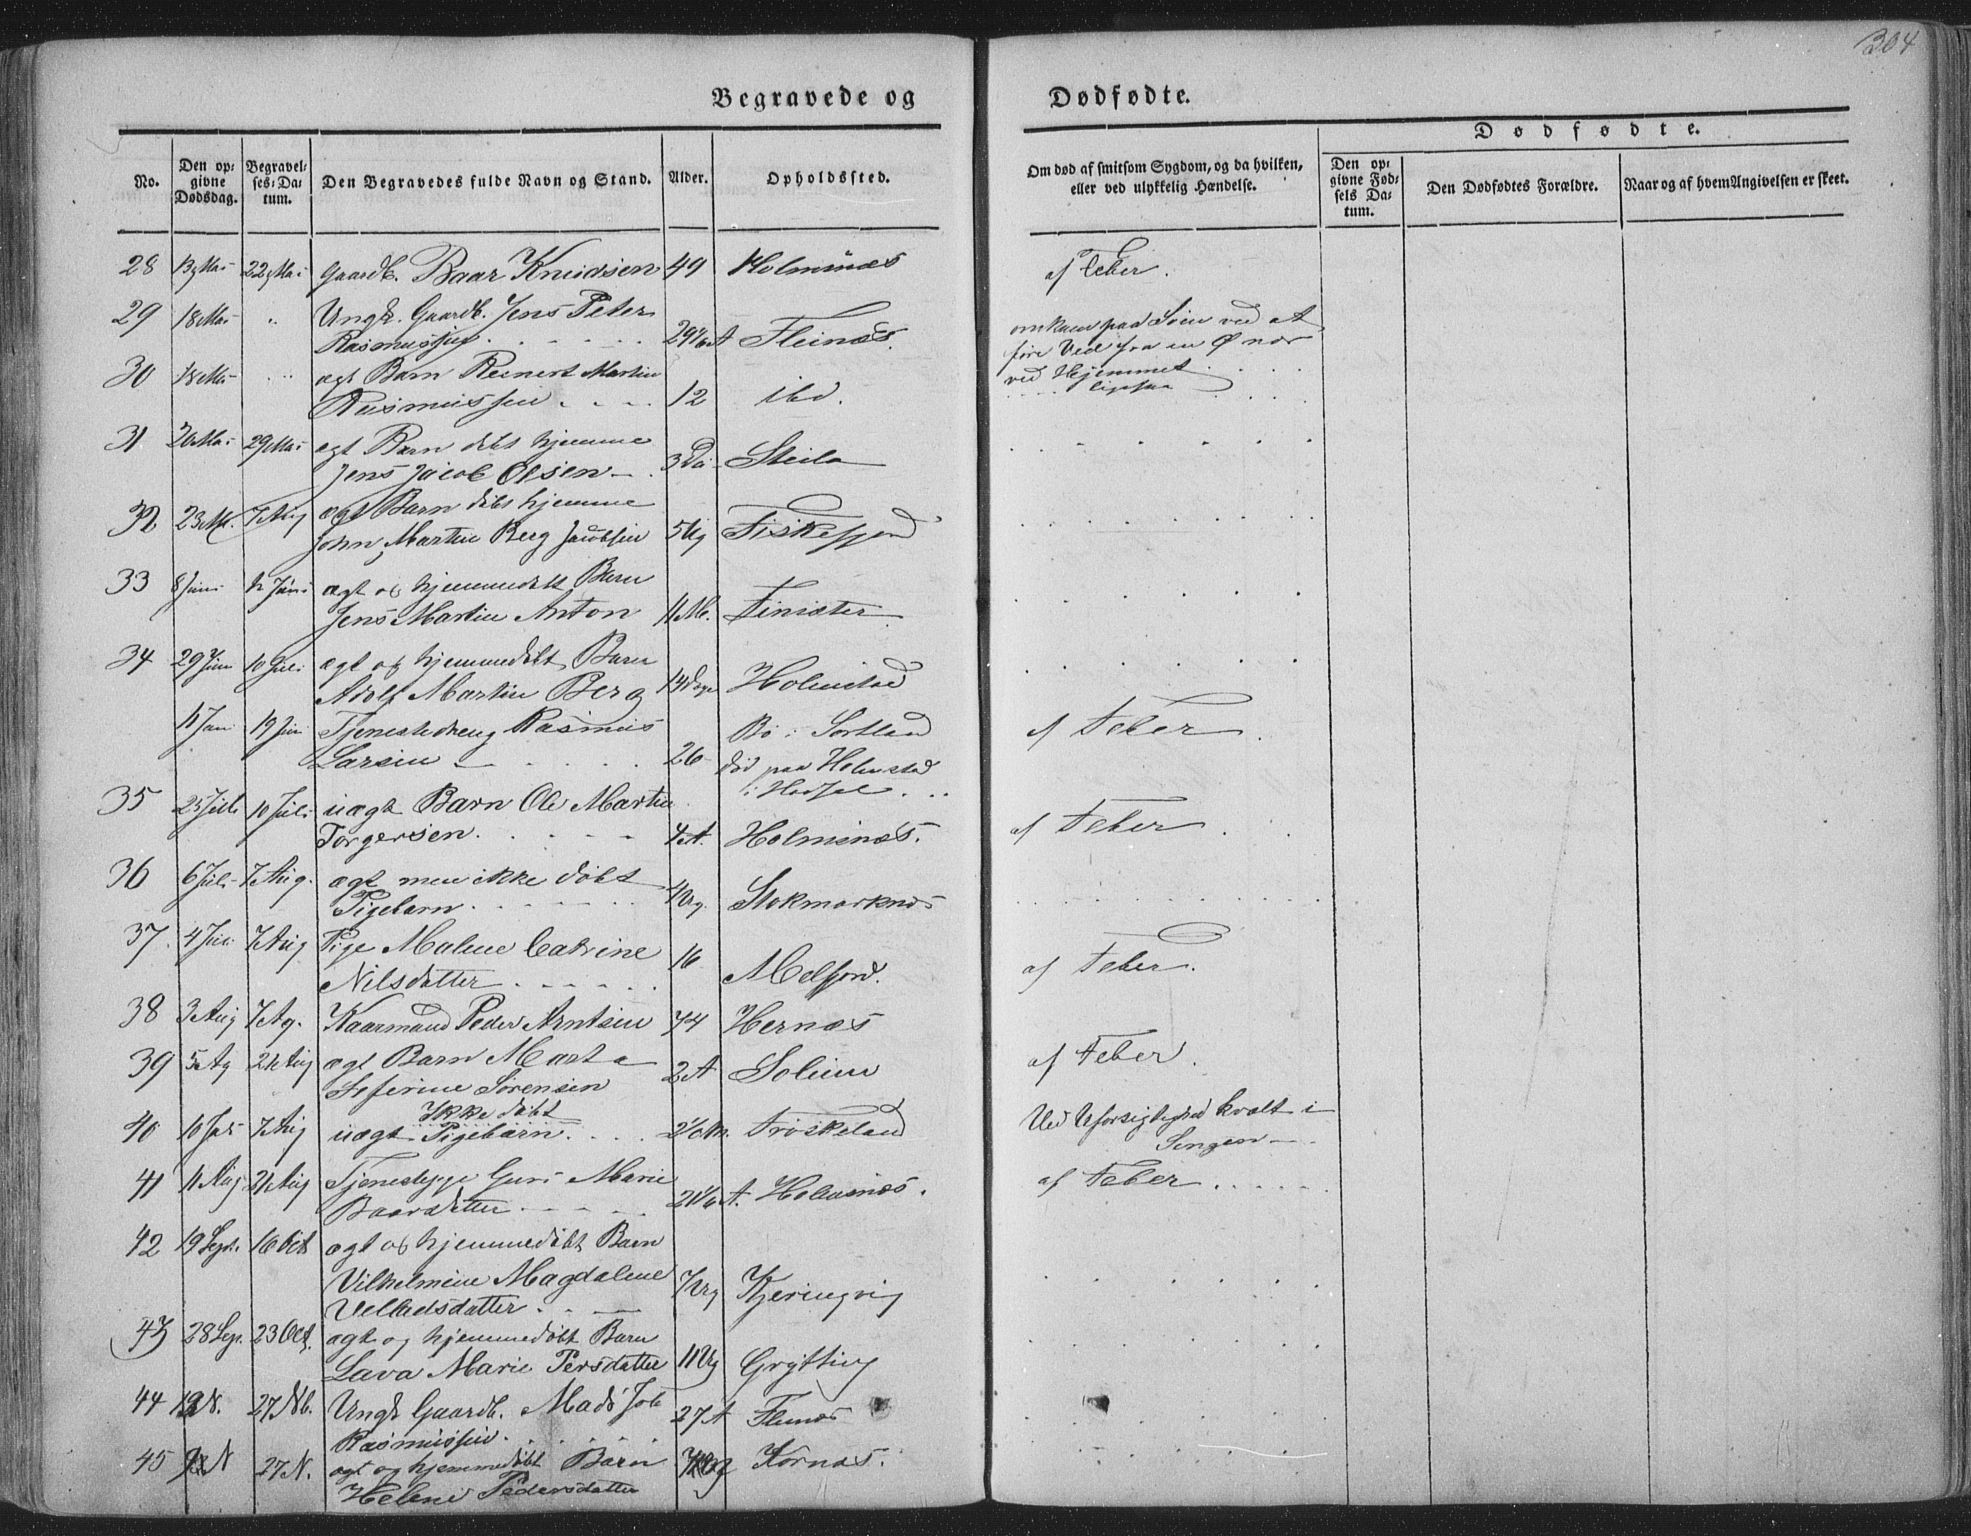 304
Begravede og Dødfødte.
No. Den op= givne Dødsdag. Begravel= ses=Da= tum. Den Begravedes fulde Navn og Stand. Alder. Opholdssted. Om død af smitsom Sygdom, og da hvilken, eller ved ulykkelig Hændelse. Dødfødte. Den op= givne Fød= sels Da= tum. Den Dødfødtes Forældre. Naar og af hvem Angivelsen er skeet.
28 22 Mai Gaardb. Baar Knudsen 49 Holmnæs af Feber.
29 18 Mai " Ungk. Gaardb. Jens Peter
Rasmussen 29 1/6 A Fleinæs. omkom paa Søen ved at
føre Ved fra en Ø nær
ved Hjemmet
30 18 Mai " ægt Barn Reinert Martin
Rasmussen 12 ibd. ligesaa
31 20 Mai 29 Mai ægt Barn døbt hjemme
Jens Jacob Olsen 3 Da Steilo
32 23 Mai 7 Aug ægt Barn døbt hjemme
John Martin Berg Jacobsen 5 Ug Fiskefjord
33 8 Juni 12 Juni ægt og hjemmedøbt Barn
Jens Martin Anton 11 M. Finsæter
34 29 Juni 10 Juli ægt og hjemmedøbt Barn
Adolf Martin Berg 14 Dage Holmstad
11 Juni 19 Jun Tjenestedreng Rasmus
Larsen 26 Bø i Sortland
død paa Holmstad
i Hadsel af Feber
35 25 10 Juli uægt Barn Ole Martin
Torgersen. 4 A. Holmnæs. af Feber
36 6 Juli 7 Aug. ægt men ikke døbt
Pigebarn. 4 Ug. Stokmarknæs
37. 4 Juli 7 Aug Pige Malene Catrine
Nilsdatter 16 Melfjord. af Feber.
38 3 Aug 7 Ag. Kaarmand Peder Arntsen 74 Hernæs
39 5 Ag 21 Aug ægt Barn Marta
Seferine Sørensen 2 A Soleim af Feber.
40 10 Juli 7 Aug uægt Ikke døbt
Pigebarn. 2 1/2 M. Frøskeland Ved Uforsigtighed kvalt i
Sengen
41 11 Aug 21 Aug Tjenestepige Guri Marie
Baarsdatter 21 1/6 A. Holmnæs. af Feber
42 19 Sept. 16 Oct ægt og hjemmedøbt Barn
Vilhelmine Magdalene
Velladsdatter 7 Ug Kjeringvig
43 28 Sep. 23 Oct. ægt og hjemmedøbt Barn
Lava Marie Persdatter 11 Ug Grytting
44 12 N. 27 Nb. Ungk Gaardb. Mads Job
Rasmussen. 27 A Fleinæs
45 27 N. ægt og hjemmedøbt Barn
Helene Pedersdatter Kornæs.